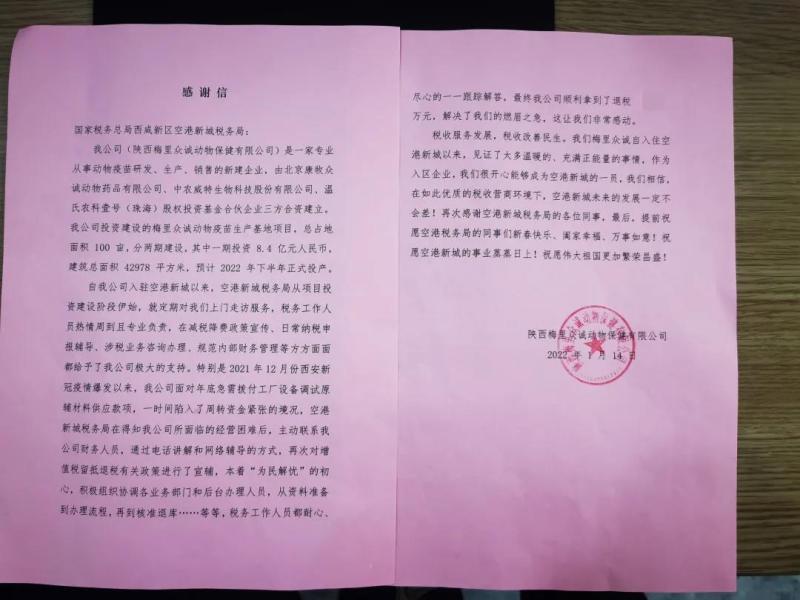 感谢信
国家税务总局西咸新区空港新城税务局：
我公司（陕西梅里众诚动物保健有限公司）是一家专业
从事动物疫苗研发、生产、销售的新建企业，由北京康牧众
诚动物药品有限公司、中农威特生物科技股份有限公司、温
氏农科壹号（珠海）股权投资基金合伙企业三方合资建立。
我公司投资建设的梅里众诚动物疫苗生产基地项目，总占地
面积 100 亩，分两期建设，其中一期投资 8.4 亿元人民币，
建筑总面积 42978 平方米，预计 2022 年下半年正式投产。
自我公司入驻空港新城以来，空港新城税务局从项目投
资建设阶段伊始，就定期对我们上门走访服务，税务工作人
员热情周到且专业负责，在减税降费政策宣传、日常纳税申
报辅导、涉税业务咨询办理、规范内部财务管理等方方面面
都给予了我公司极大的支持。特别是 2021 年 12 月份西安新
冠疫情爆发以来，我公司面对年底急需拨付工厂设备调试原
辅材料供应款项，一时间陷入了周转资金紧张的境况，空港
新城税务局在得知我公司所面临的经营困难后，主动联系我
公司财务人员，通过电话讲解和网络辅导的方式，再次对增
值税留抵退税有关政策进行了宣辅，本着“为民解忧”的初
心，积极组织协调各业务部门和后台办理人员，从资料准备
到办理流程，再到核准退库……等等，税务工作人员都耐心、
尽心的一一跟踪解答，最终我公司顺利拿到了退税
万元，解决了我们的燃眉之急，这让我们非常感动。
税收服务发展，税收改善民生。我们梅里众诚自入住空
港新城以来，见证了大多温暖的、充满正能量的事情，作为
入区企业，我们很开心能够成为空港新城的一员，我们相信，
在如此优质的税收营商环境下，空港新城未来的发展一定不
会差！再次感谢空港新城税务局的各位同事，最后，提前祝
愿空港税务局的同事们新春快乐、阖家幸福、万事如意！祝
愿空港新城的事业蒸蒸日上！祝愿伟大祖国更加繁荣昌盛！
陕西梅里众诚动物保健有限公司
2022 年 1 月 14 日